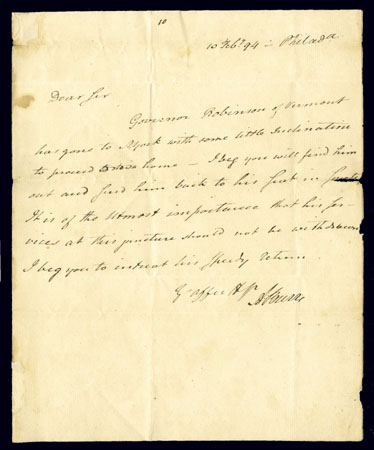 10
10 Feb. 94 - Philada.
Dear Sir
Governor Robinson of Vermont
has gone to NYork with some little Inclination
to proceed home - I beg you will find him
out and send him back to his seat in
It is of the utmost importance that his ser-
vices at this juncture should not be withdrawn
I beg you to intreat his speedy return
Yr affec
ABurr